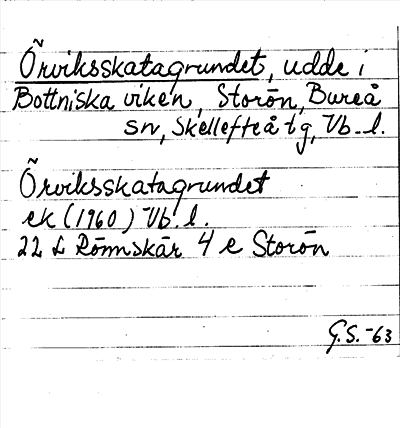 Örviksskatagrundet, udde i
Bottniska viken, Storön, Bureå
sn, Skellefteå tg, Vb. l.
Örviksskatagrundet
ek (1960) Vb. l.
22 L Rönnskär 4 e Storön
G.S. -63